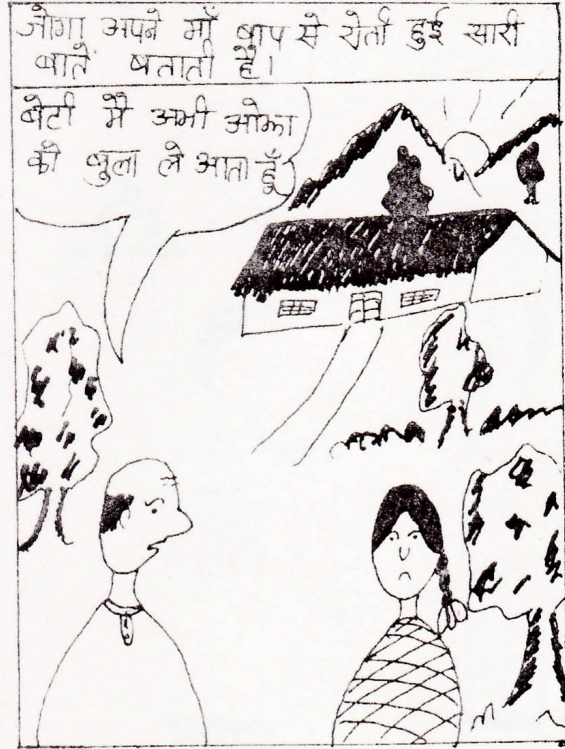 जोगा अपने माँ बाप से रोती हुई सारी
बातें बताती है।
बेटी मै अभी ओझा
को बुला ले आता हूँ